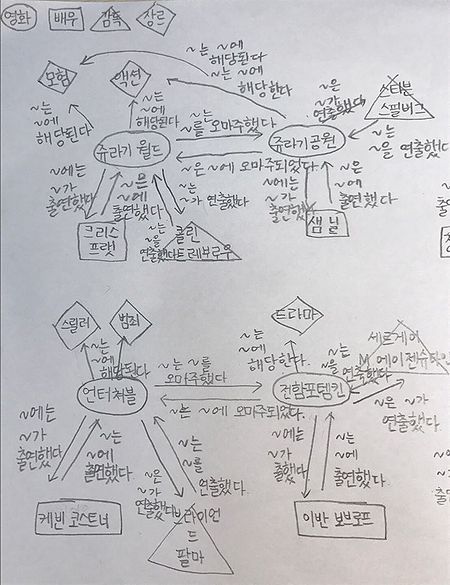 영화 배우 감독 장르
~는 ~에
해당된다
~는 ~에
해당한다
모험
액션
~는
~에
해당된다
~는
~에
해당된다
~는
~를 오마주했다
~은
~가
연출했다
스티븐
스필버그
~는
~을 연출했다
쥬라기 월드
쥬라기 공원
~은 ~에 오마주되었다
~에는
~가
출연했다
~은
~에
출연했다
~는
~가 연출했다
~는
~을
연출했다
크리스
프랫
콜린
트레보로우
~에는
~가
출연했다
~은
~에
출연했다
샘 닐
스릴러
범죄
~는
~에
해당된다
드라마
~는
~에
해당한다.
~는
~을
연출했다
세르게이
M 에이젠슈타인
~은 ~가
연출했다
~는 ~를
오마주했다
언터쳐블
전함포템킨
~는 ~에 오마주되었다.
~에는
~가
출연했다
~는
~에
출연했다
~은
~가
연출했다
~는
~를
연출했다
~에는
~가
출연했다
~는
~에
출연했다
케빈 코스트너
브라이언
드
팔마
이반 보브로프